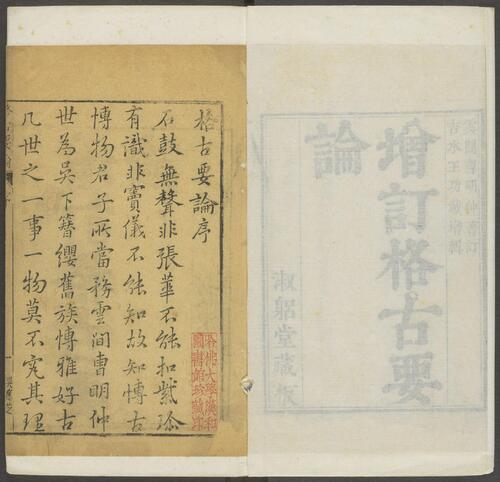 吉水王功載增輯
增訂格古要
論
淑躳堂藏板
格古要論序
石鼓無聲非張華不能扣紫珍
有識非竇儀不能知故知博古
博物君子所當務雲間曹明仲
世為吳下簪纓舊族博雅好古
凡世之一事一物莫不究其理
哈佛大學漢和
圖書館珍藏印